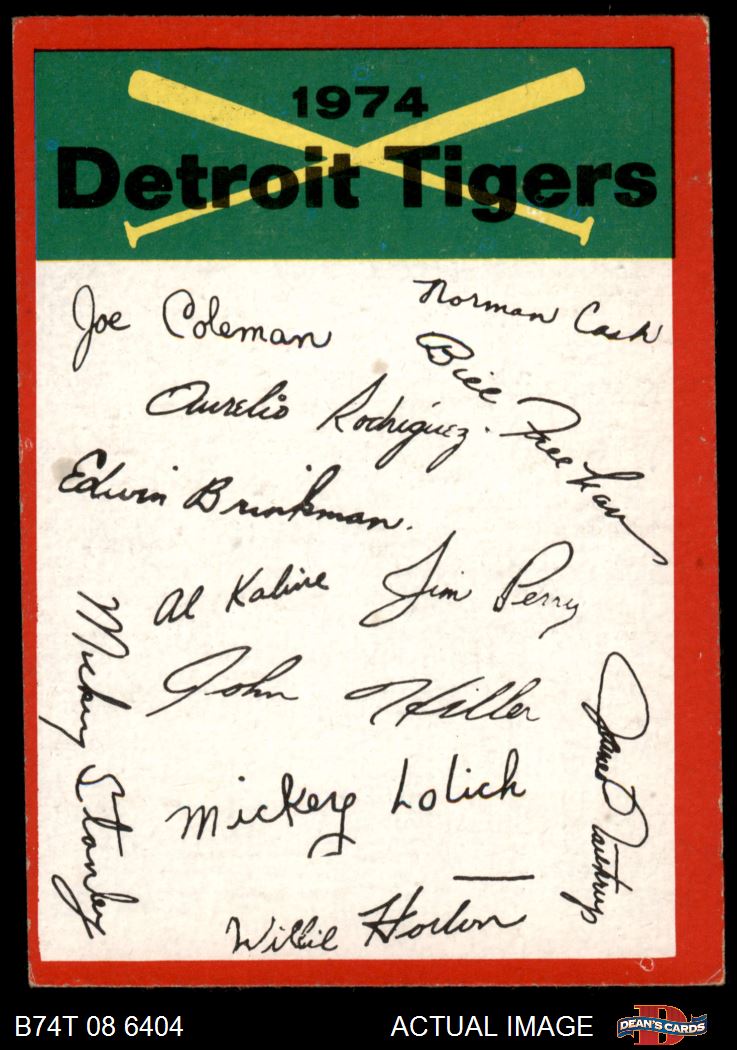 1974
Detroit Tigers
Joe Coleman
Norman Cash
Bill Freehan
Aurelio Rodriguez.
Edwin Brinkman.
Al Kaline
Jim Perry
Mickey Stanley
John Hiller
James Northrup
Mickey Lolich
Willie Horton
B74T 08 6404
ACTUAL IMAGE
D
DEAN'S CARDS